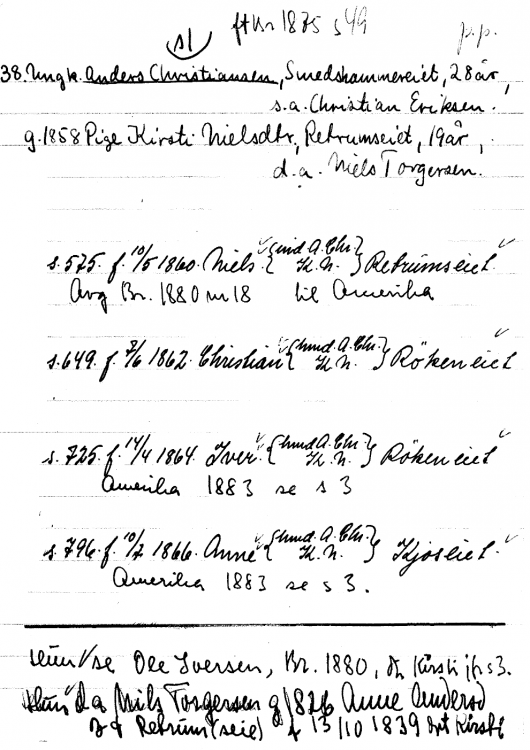 ft Nr 1875 s 49
s1
p.p.
38. Ungk. Anders Christiansen, Smedshammereiet, 28 år,
s.a. Christian Eriksen.
g. 1858 Pige Kirsti Nielsdtr, Retrumseiet, 19 år,
d.a. Niels Torgersen.
s. 575. f. 10/5 1860. Niels { A. Chr. K. N. } Retrumseiet
Avg Br. 1880 nr 18 til Amerika
s. 649. f. 8/6 1862. Christian { hmd. A. Chr. K. N. } Röken eiet
s. 725. f. 14/4 1864. Iver { hmd. A. Chr. K. N. } Röken eiet
Amerika 1883 se s 3
s. 796. f. 10/2 1866. Anne { hmd. A. Chr. K. N. } Kjoseiet.
Amerika 1883 se s 3.
se Ole Iversen, Br. 1880, Kirsti jfr s 3.
Hun d a Niels Torgersen g 1826 Anne
Retrum(seie) f 13/10 1839 Kirsti